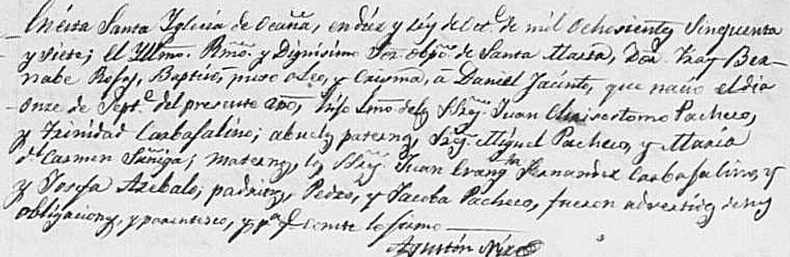 En esta Santa Yglecia de Ocaña, en diez y seis de Oct.e de mil Ochosientos Sinquenta
y Siete; El Yltmo. Rmõ. y Dignisimo Sor. obpõ. de Santa Marta, Don Fray Ber-
nabe Rojas, Baptisó, puso oleo, y Crisma, a Daniel Jacinto, que nacio el dia
onze de Sept.e del presente año, hijo lmo de los SSres Juan Chrisostomo Pacheco,
y Trinidad Carbafalino; abuelos paternos, Sres Miguel Pacheco, y Maria
del Carmen Suñiga; maternos, los SSres Juan Evangta Fernandez Carbafalino, y
y Josefa Azebalo; padrinos, Pedro, y Jacoba Pacheco, fueron advertidos de sus
obligaciones, y parentesco, y pa q conste lo firmo
Agustón